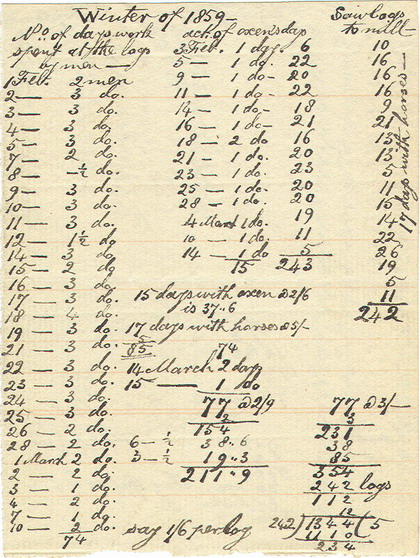 Winter of 1859—
No of days work
spent at the logs
by men —
1 Feb. 2 men
2 — 3 do.
3 — 3 do.
4 — 3 do.
5 — 3 do.
7 — 2 do.
8 — ½ do.
9 — 3 do.
10 — 3 do.
11 — 3 do.
12 — 1½ do
14 — 3 do.
15 — 2 do
16 — 3 do.
17 — 3 do.
18 — 4 do.
19 — 3 do.
21 — 3 do.
22 — 3 do.
23 — 3 do.
24 — 3 do.
25 — 3 do.
26 — 2 do.
28 — 2 do.
1 March 2 do.
2 — 2 do.
3 — 1 do.
4 — 2 do.
7 — 1 do.
10 — 2 do.
74
act. of oxen's days
3 Feb. 1 day 6
5 — 1 do — 22
9 — 1 do — 20
11 — 1 do — 22
14 — 1 do — 18
16 — 1 do — 21
18 — 2 do 16
21 — 1 do. 20
23 — 1 do. 23
25 — 1 do. 20
28 — 1 do. 20
4 March 1 do. 19
10 — 1 do. 11
14 — 1 do 5
15 243
Saw logs
to mill —
10
16
16
16
9
21
13
13
5
11
15
14
22
26
19
5
11
242
17 days with horses —
15 days with oxen @ 2/6
is 37..6
17 days with horses @ 5/-
85
74
14 March 2 days
15 — 1 do
77 @ 2/9
2
154
6 — ½ 38..6
3 — ½ 19..3
211..9
77 @ 3/-
3
231
38
85
354
242 logs
112
12
242) 1344 (5
1110
234
say 1/6 per log